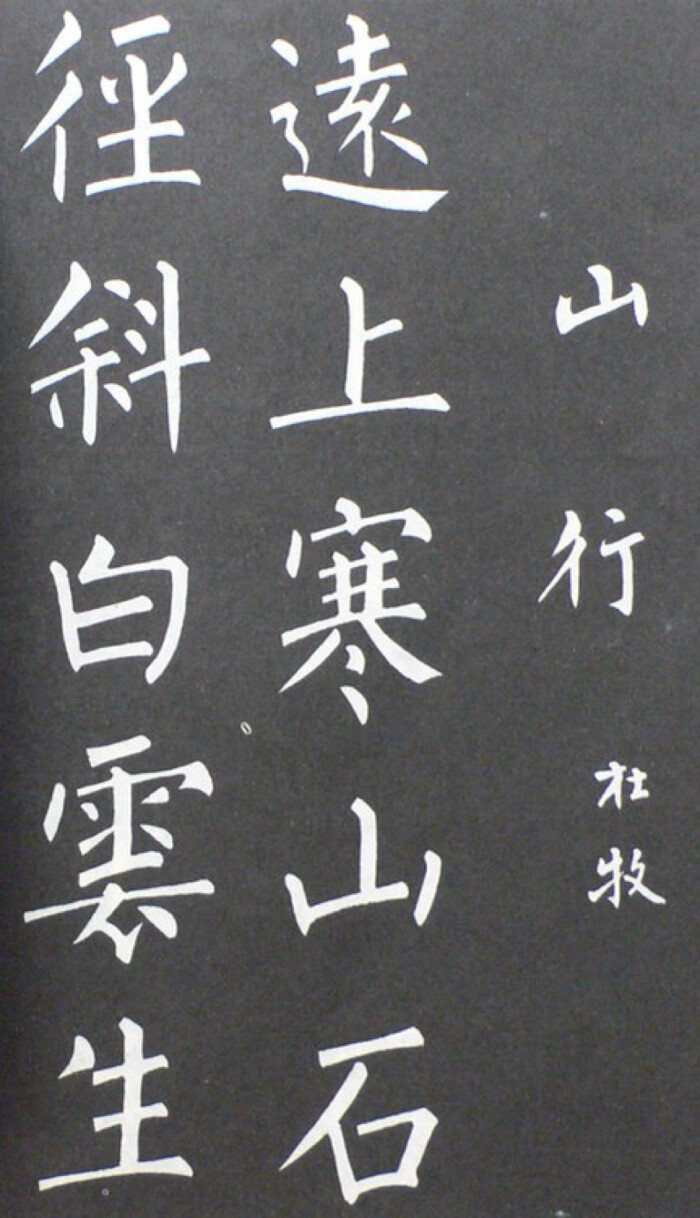 山行
杜牧
遠上寒山石
徑斜白雲生